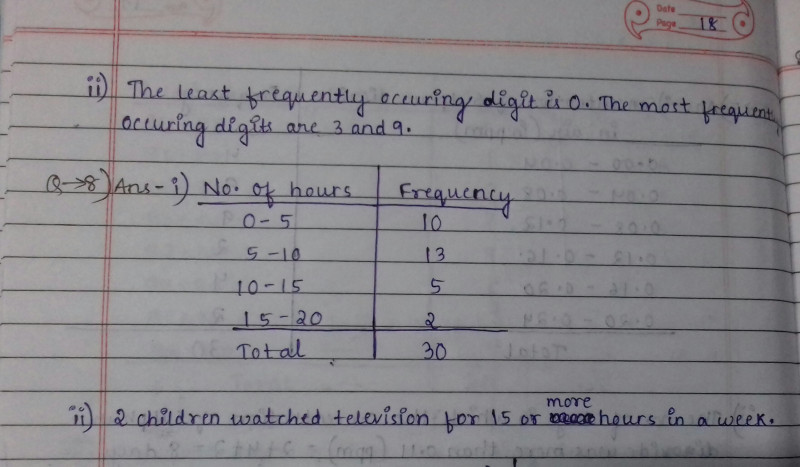 Date
Page 18
ii) The least frequently occuring digit is 0. The most frequently
occuring digits are 3 and 9.
Q→8) Ans - i) No. of hours Frequency
0-5 10
5-10 13
10-15 5
15-20 2
Total 30
more
ii) 2 children watched television for 15 or hours in a week.